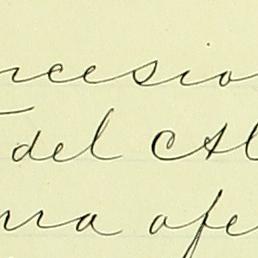 ncesio
del Al
rra ofe